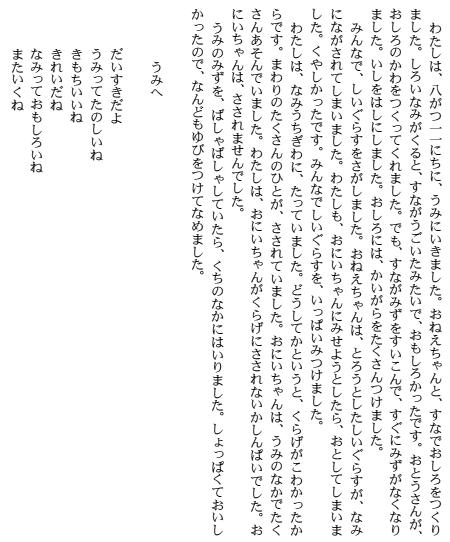 わたしは、八がつ一一にちに、うみにいきました。おねえちゃんと、すなでおしろをつくり
ました。しろいなみがくると、すながうごいたみたいで、おもしろかったです。おとうさんが、
おしろのかわをつくってくれました。でも、すながみずをすいこんで、すぐにみずがなくなり
ました。いしをはしにしました。おしろには、かいがらをたくさんつけました。
みんなで、しいぐらすをさがしました。おねえちゃんは、とろうとしたしいぐらすが、なみ
にながされてしまいました。わたしも、おにいちゃんにみせようとしたら、おとしてしまいま
した。くやしかったです。みんなでしいぐらすを、いっぱいみつけました。
わたしは、なみうちぎわに、たっていました。どうしてかというと、くらげがこわかったか
らです。まわりのたくさんのひとが、さされていました。おにいちゃんは、うみのなかでたく
さんあそんでいました。わたしは、おにいちゃんがくらげにさされないかしんぱいでした。お
にいちゃんは、さされませんでした。
うみのみずを、ばしゃばしゃしていたら、くちのなかにはいりました。しょっぱくておいし
かったので、なんどもゆびをつけてなめました。
うみへ
だいすきだよ
うみってたのしいね
きもちいいね
きれいだね
なみっておもしろいね
またいくね